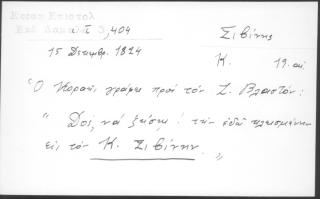 Κοραη Επιστολ
Εκδ Δαμαλα 3, 404
Σιβίνης
15 Δεκεμβρ. 1814
Κ.
19. αι.
Ὁ Κοραῆς γράφει πρὸς τὸν Ζ. Βλαστόν:
" Δός, νὰ ζήσῃς, τὴν ἐδῶ
εἰς τὸν Κ. Σιβίνην. "